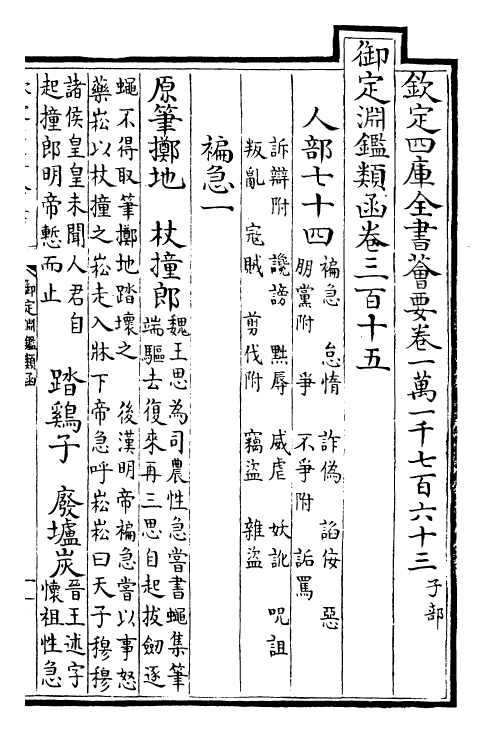 欽定四庫全書薈要卷一萬一千七百六十三 子部
御定淵鑑類函卷三百十五
人部七十四 褊急 怠惰 詐偽 諂佞 惡
朋黨附 爭 不爭附 詬罵
訴辯附 讒謗 㸃辱 威虐 妖訛 呪詛
叛亂 寇賊 剪伐附 竊盜 雜盜
褊急一
原筆擲地 杖撞郎 魏王思為司農性急嘗書蠅集筆
端驅去復來再三思自起拔劒逐
蠅不得取筆擲地踏壞之 後漢明帝褊急嘗以事怒
藥崧以杖撞之崧走入牀下帝急呼崧崧曰天子穆穆
諸侯皇皇未聞人君自
起撞郎明帝慙而止
踏鷄子 廢壚炭 晉王述字
懷祖性急
御定淵鑑類函
一